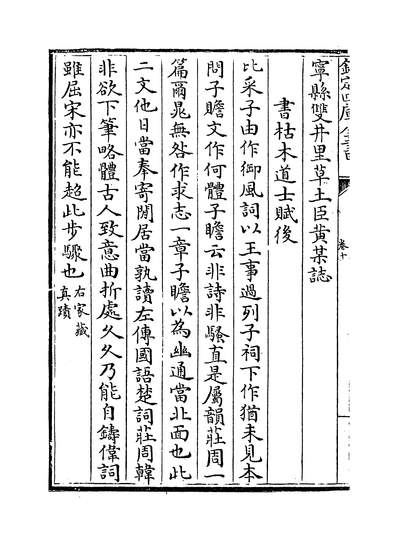 欽定四庫全書
卷十
寧縣雙井里草土臣黄某誌
書枯木道士賦後
比采子由作御風詞以王事過列子祠下作猶未見本
問子瞻文作何體子瞻云非詩非騷直是屬韻莊周一
篇爾晁無咎作求志一章子瞻以為幽通當北面也此
二文他日當奉寄閑居當孰讀左傳國語楚詞莊周韓
非欲下筆略體古人致意曲折處久久乃能自鑄偉詞
雖屈宋亦不能超此步驟也
右家藏
真蹟